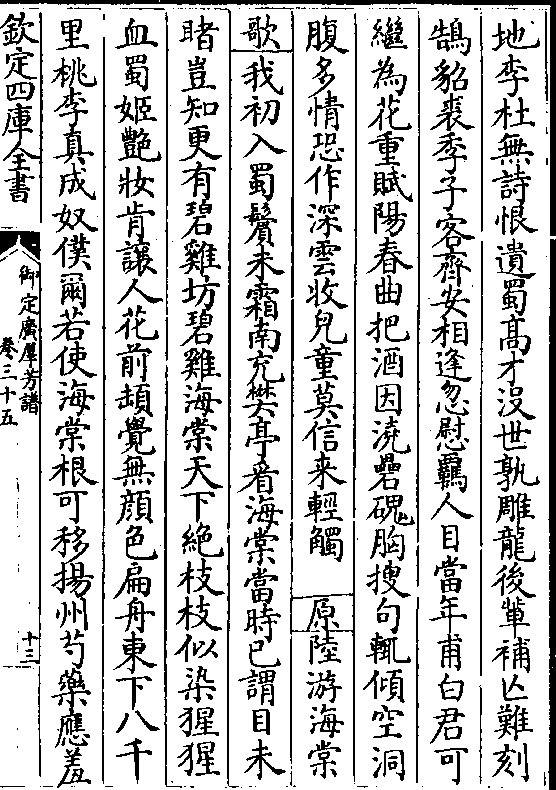 地李杜無詩恨遺蜀髙才沒世孰雕龍後軰補亾難刻
鵠貂裘季子客齊安相逢忽慰羈人目當年甫白君可
繼為花重賦陽春曲把酒因澆壘磈胸搜句輒傾空洞
腹多情恐作深雲收兒童莫信来輕觸　原陸游海棠
歌我初入蜀鬢未霜南充樊亭看海棠當時已謂目未
睹豈知更有碧雞坊碧雞海棠天下絶枝枝似染猩猩
血蜀姬艷妝肯讓人花前頓覺無顔色扁舟東下八千
里桃李真成奴僕爾若使海棠根可移揚州芍藥應羞
欽定四庫全書
御定廣羣芳譜
卷三十五
十三